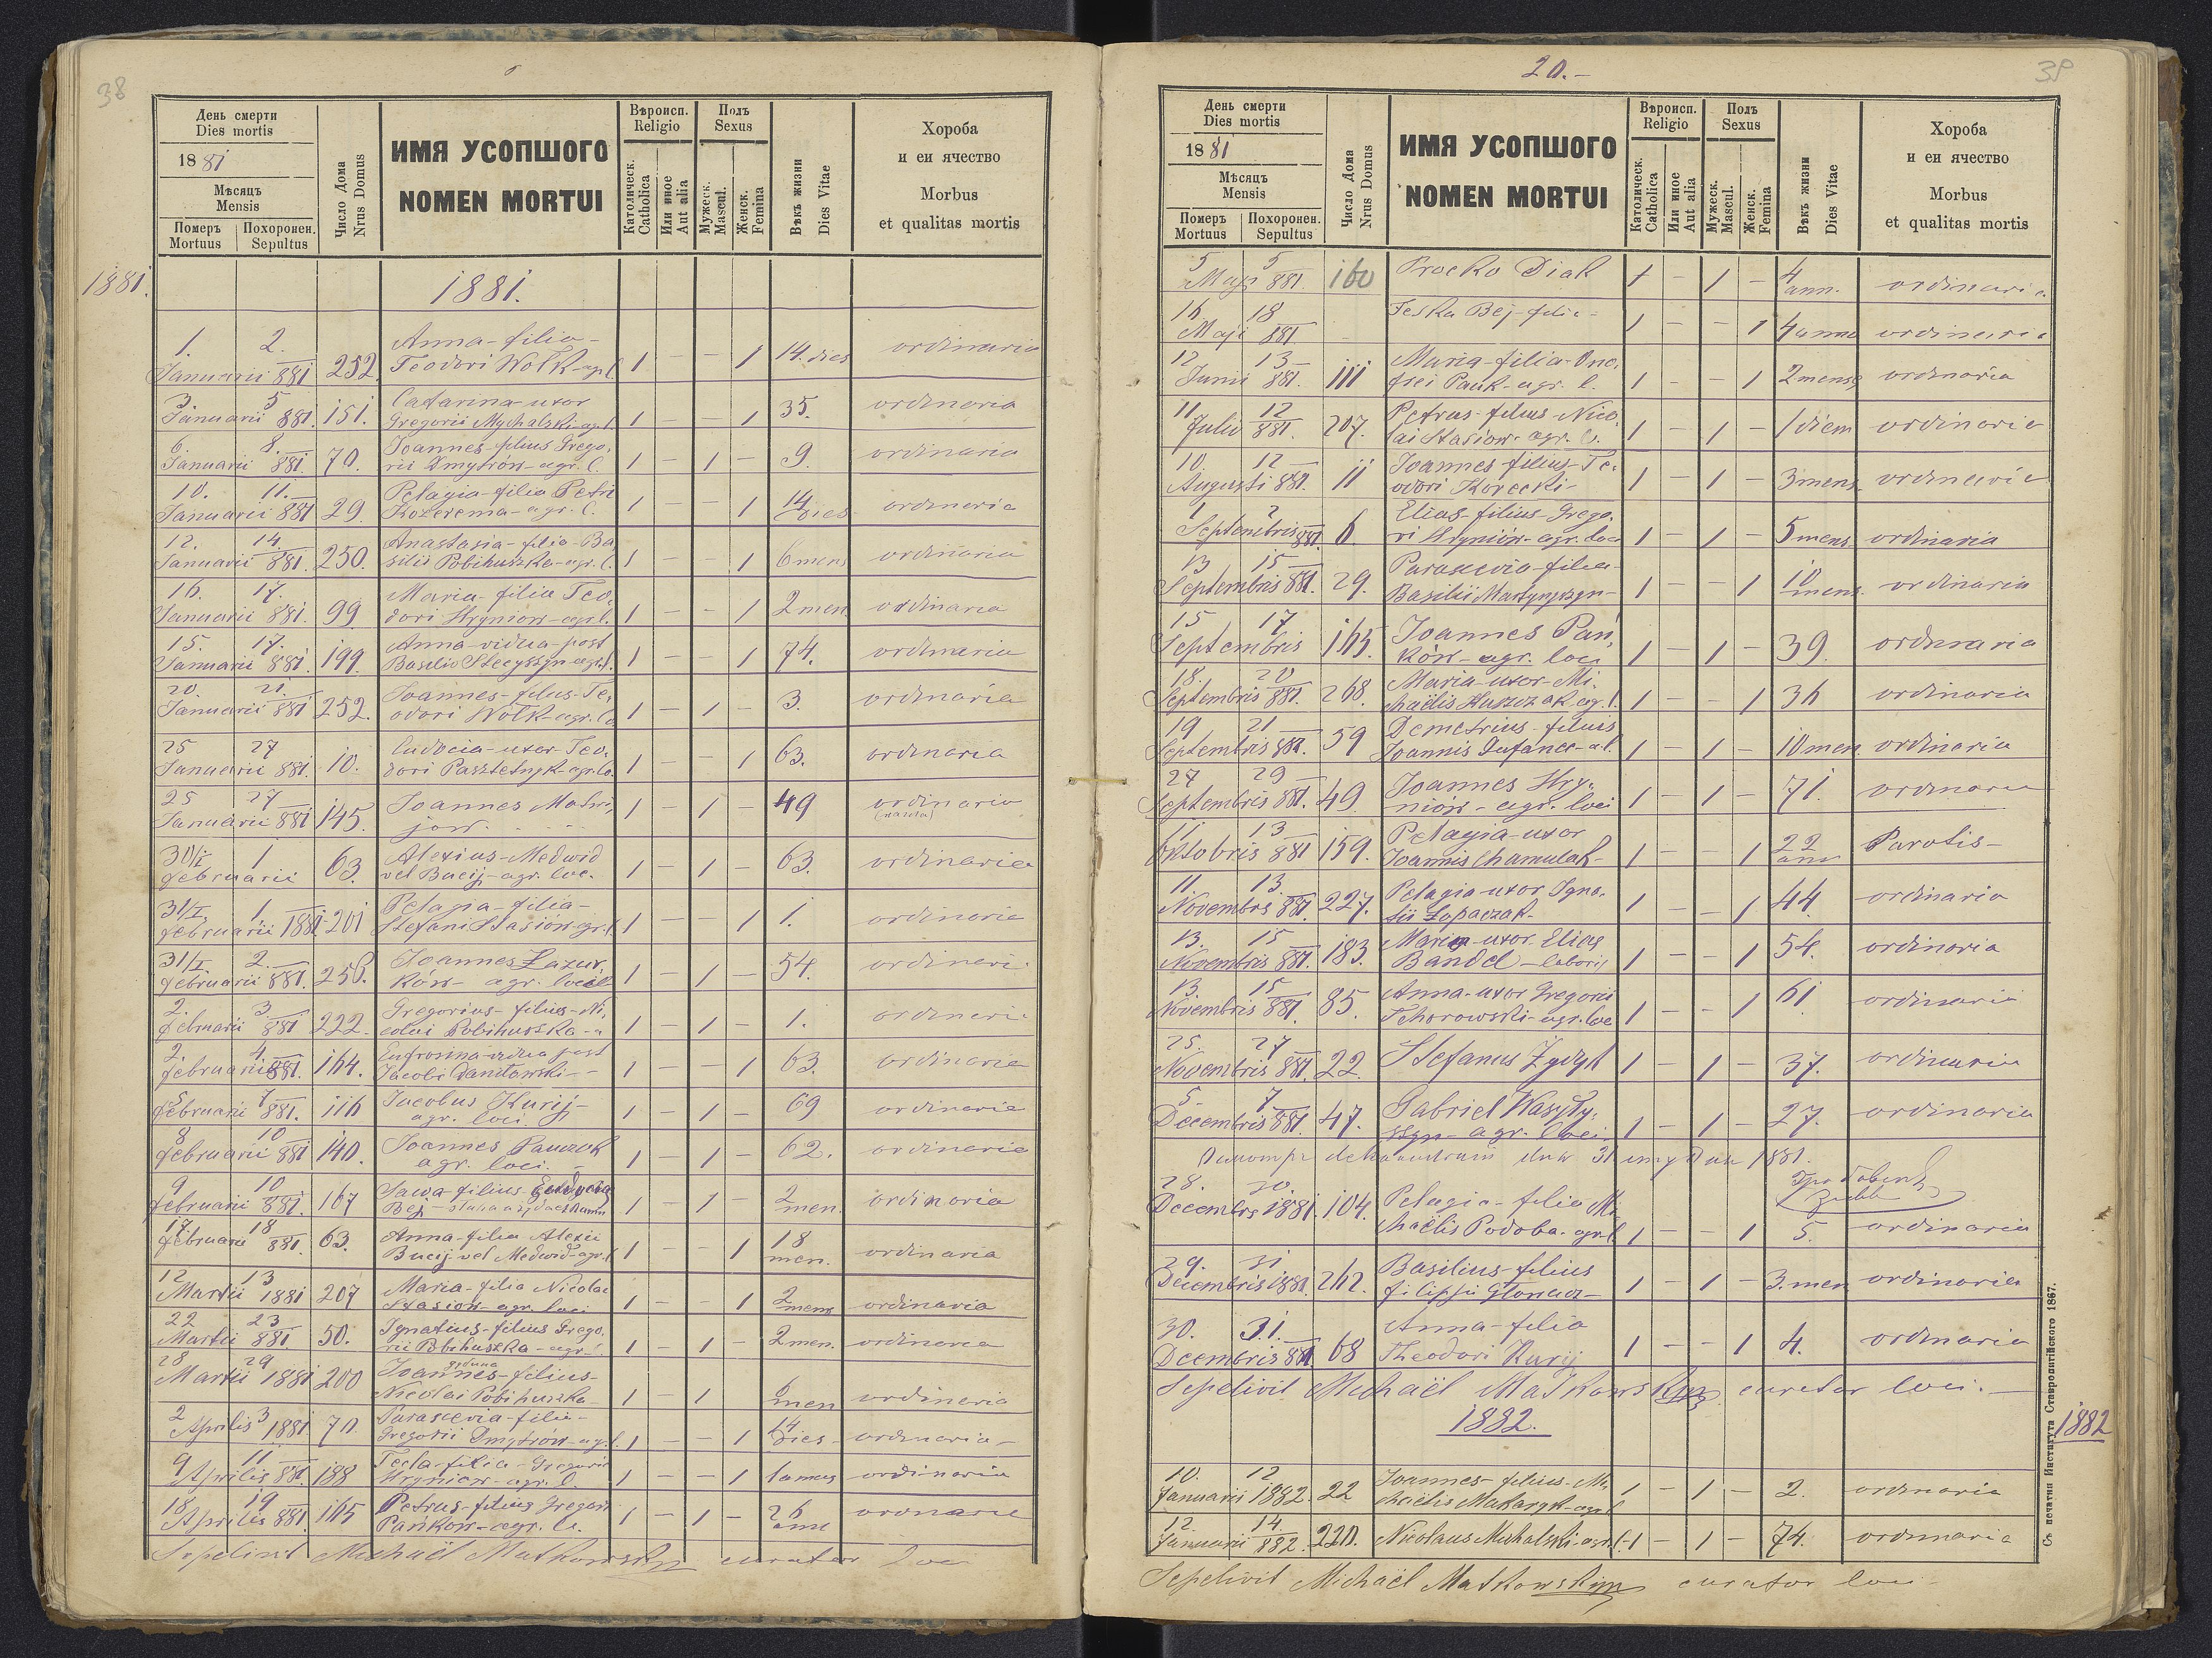 38
День смерти
Dies mortis
1881
Мѣсяцъ
Mensis
Померъ
Mortuus
Похоронен.
Sepultus
Число Дома
Nrus Domus
ИМЯ УСОПШОГО
NOMEN MORTUI
Вѣроисп.
Religio
Католическ.
Catholica
Или иное
Aut alia
Полъ
Sexus
Мужеск.
Mascul.
Женск.
Femina
Вѣкъ жизни
Dies Vitae
Хороба
и еи ячество
Morbus
et qualitas mortis
1881.
1881.
1. 2. Anna-filia-
Januarii 881 252. Teodori Wolk-agr. l. 1 - - 1 14. dies ordinaria
3 5 Catarina-uxor
Januarii 881. 151. Gregorii Mychalski-agr. l. 1 - - 1 35. ordinaria
6. 8. Joannes-filius Grego,
Januarii 881. 70. rii Dmytrów-agr. l. 1 - 1 - 9. ordinaria
10. 11. Pelagia-filia Petri
Januarii 881 29. agr. l. 1 - - 1 14 dies ordinaria
12. 14. Anastasia-filia-Ba
Januarii 881. 250. silii Pobihuszka-agr. l. 1 - - 1 6 mens ordinaria
16. 17. Maria-filia Teo,
Januarii 881. 99 dori Hryniow-agr. l. 1 - - 1 2 men ordinaria
15. 17. Anna-vidua-post
Januarii 881. 199. Basilio agr. l. 1 - - 1 74. ordinaria
20. 21. Joannes-filius-Te,
Januarii 881 252. odori Wolk-agr. lo 1 - 1 - 3. ordinaria
25 27 Eudocia-uxor Teo,
Januarii 881. 10. dori agr. lo. 1 - - 1 63. ordinaria
25 27 Joannes
Januarii 881 145. 1 - 1 - 49 ordinaria
30/I 1 Alexius-Medwid
februarii 63. vel Bucij-agr. loc. 1 - 1 - 63. ordinaria
31/I. 1. Pelagia-filia-
februarii 1881. 201 Stefani Stasiów-agr. l 1 - - 1 1. ordinaria
31/I 2. Joannes Łazur,
februarii 881. 256. ków- agr. loci 1 - 1 - 54. ordinari
2. 3. Gregorius-filius-Ni,
februarii 881 222. colai Pobihuszka 1 - 1 - 1. ordinari
2. 4. Eufrosina-vidua post
februarii 881. 164. Jacobi Daniłowski- 1 - - 1 63. ordinaria
5 7 Jacobus Kurij-
februarii 881. 116 agr. loci. 1 - 1 - 69 ordinaria
8 10 Joannes Pauczok
februarii 881 140. agr. loci. 1 - 1 - 62. ordinaria
9 10 Sawa-filius-
februarii 881. 167 Bej 1 - 1 - 2 men. ordinaria
17. 18 Anna-filia Alexii
februarii 881. 63. Bucij vel Medwid-agr. l 1 - - 1 18 men. ordinaria
12 13 Maria-filia Nicolai
Martii 1881 207 Stasiow-agr. loci 1 - - 1 2 mens ordinaria
22 23 Ignatius-filius Grego,
Martii 881. 50. rii Pobihuszka-agr. 1 - 1 - 2 men. ordinaria
28 29 Joannes-filius-
Martii 1881 200 Nicolai Pobihuszka 1 - 1 2 men ordinaria
2 3 Parascevia-filia-
Aprilis 1881 70 Gregorii Dmytrów-ag. l. 1 - - 1 14 dies- ordinaria-
9 11 Tecla-filia-Gregorii
Aprilis 881. 188 Hryniów-agr. l. 1 - - 1 ordinaria
18 19 Petrus-filius Gregorii
Aprilis 881. 165 Pańkow-agr. l. 1 - 1 - 26 ordinaria
Sepelivit Michaël Matkowskyj curator loci
20.-
39
День смерти
Dies mortis
1881
Мѣсяцъ
Mensis
Померъ
Mortuus
Похоронен.
Sepultus
Число Дома
Nrus Domus
ИМЯ УСОПШОГО
NOMEN MORTUI
Вѣроисп.
Religio
Католическ.
Catholica
Или иное
Aut alia
Полъ
Sexus
Мужеск.
Mascul.
Женск.
Femina
Вѣкъ жизни
Dies Vitae
Хороба
и еи ячество
Morbus
et qualitas mortis
5 5 Procko Diak
Maji 881. 160 1 - 1 - 4 ann. ordinaria
16 18 Feska Bej-filia-
Maji 881. 1 - - 1 4 anno ordinaria
12 13 Maria-filia-Ono,
Junii 881. 111 frei Pauk-agr. l. 1 - - 1 2 mens ordinaria
11 12 Petrus-filius-Nico
Julio 881. 207. lai Stasiow-agr. l. 1 - 1 - 1 diem ordinaria
10. 12 Joannes filius-Te,
Augusti 881. 11 odori Korecki- 1 - 1 - 3 mens. ordinaria
1 2 Elias-filius-Grego,
Septembris 881. 6. ri Hryniów-agr. loci 1 - 1 - 5 mens- ordinaria
13 15 Parascevia-filia-
Septembris 881. 29. Basilii Martynyszyn- 1 - - 1 10 mens. ordinaria
15 17 Joannes Pań,
Septembris 165. ków-agr. loci 1 - 1 - 39. ordinaria
18. 20 Maria-uxor-Mi,
Septembris 881. 268. chaëlis Huszczak agr. l. 1 - 1 36 ordinaria
19 21 Demetrius-filius
Septembris 881. 59 Joannis a. l. 1 - 1 - 10 men. ordinaria
27 29 Joannes Hry,
Septembris 881. 49. niów-agr. loci 1 - 1 - 71. ordinaria
11 13 Pelagia-uxor
Oktobris 881 159. Joannis Chamulak- 1 - - 1 22 ann Parotis-
11. 13. Pelagia-uxor Igna,
Novembris 881. 227. tii Łopaczak- 1 - - 1 44. ordinaria
13. 15 Maria-uxor Elias
Novembris 881. 183. Bandel-laboris 1 - - 1 54. ordinaria
13. 15 Anna-uxor Gregorii
Novembris 881. 85. Tchorowski-agr. loc 1 - - 1 61. ordinaria
25. 27 Stefanus Żydyk
Novembris 881. 22. 1 - 1 - 37. ordinaria
5. 7 Gabriel Wasyły,
Decembris 881. 47. szyn-agr. loci. 1 - 1 - 27. ordinaria
31 1881.
28. 30 Pelagia-filia Mi
Decembris 1881. 104. chaëlis Podoba-agr. l. 1 - - 1 5. ordinaria
29. 31 Basilius-filius
Decembris 1881. 262. filippi 1 - 1 - 3. men ordinaria
30. 31. Anna-filia
Dcembris 881. 68 Theodori Kurij 1 - - 1 4. ordinaria
Sepelivit Michaël Matkowskyj curator loci.-
1882.
1882
10. 12 Joannes-filius-Mi,
Januarii 1882. 22 chaëlis Makaryk-agr. l 1 - 1 - 2. ordinaria
12. 14. Nicolaus Michalski-agr. l.
Januarii 882. 220. 1 - 1 - 74. ordinaria
Sepelivit Michaël Matkowskyj curator loci-
Съ печатни Института Ставропигійского 1867.